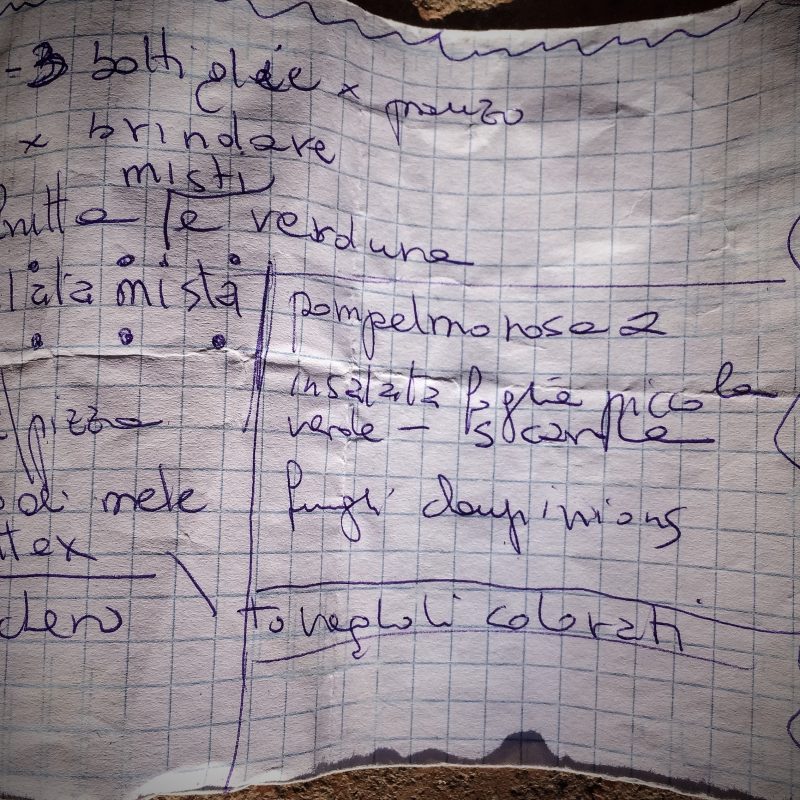 - 3 bottiglie x pranzo
x brindare
misti
Fritto e verdure
lata mista
pizza
di mele
tex
pompelmo rosa 2
insalata foglia piccola
verde - scarola
funghi champinions
tovaglioli colorati